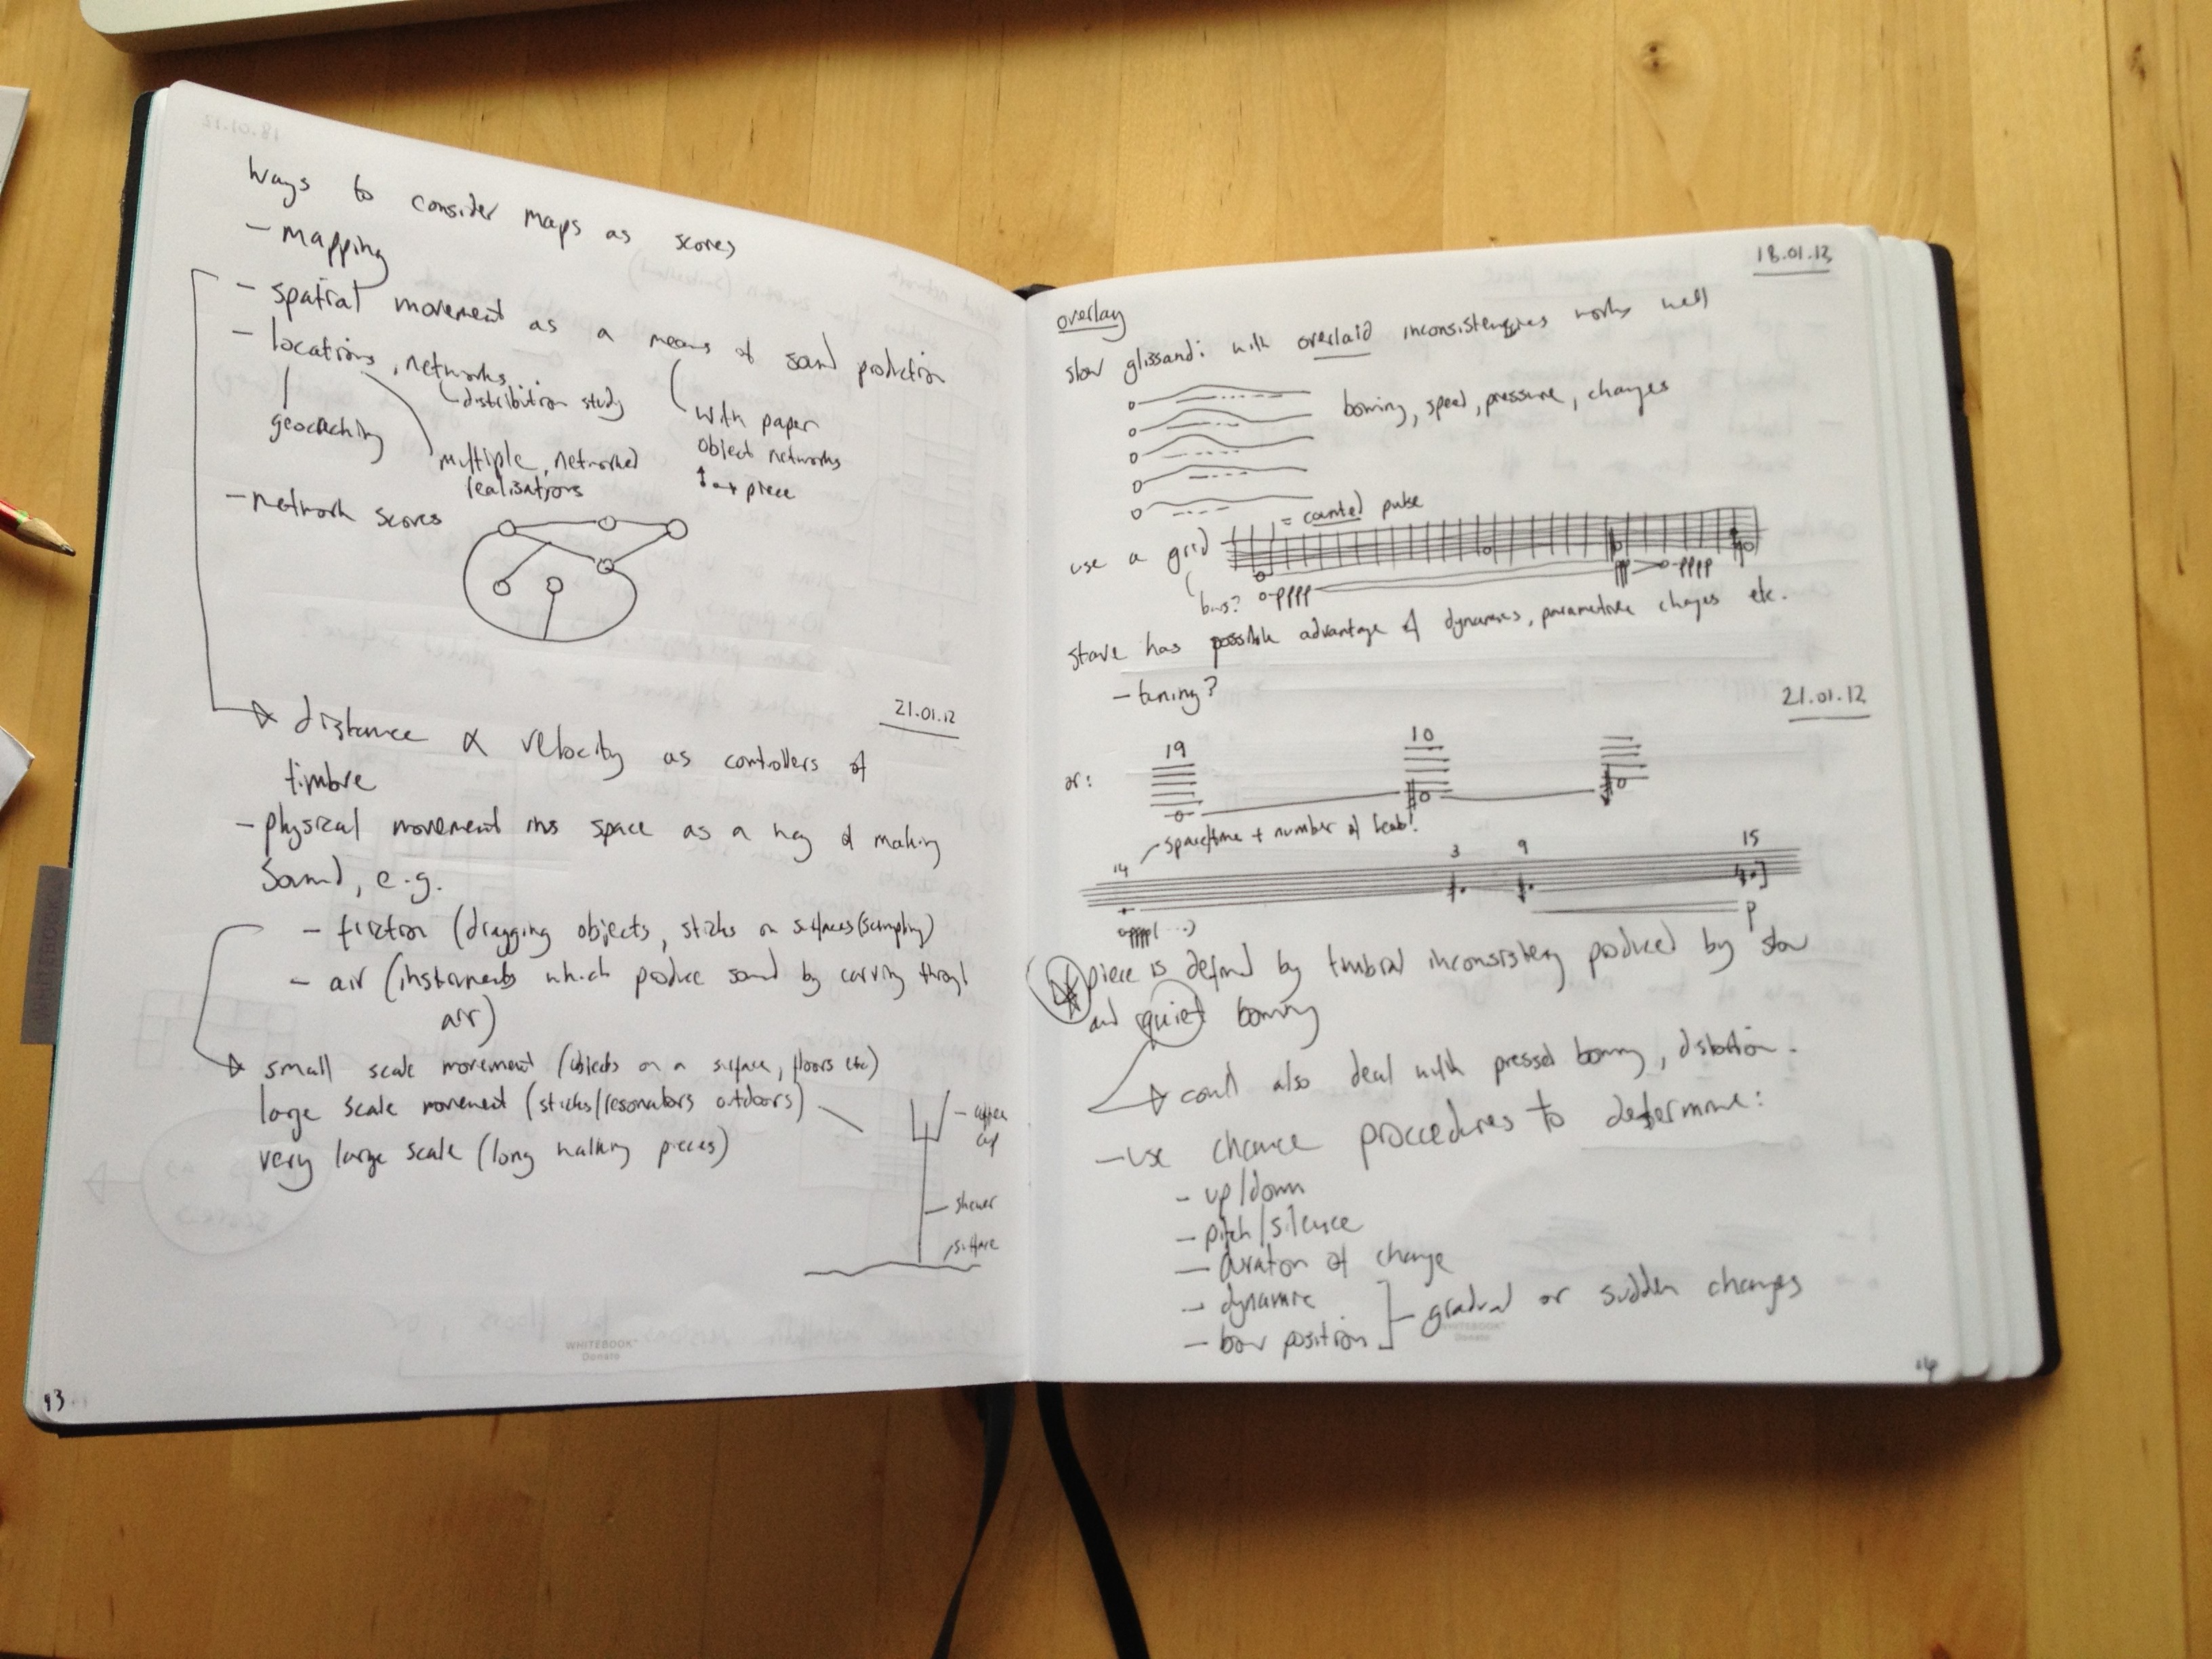 Ways to consider maps as scores
- mapping
- spatial movement as a means of sound production
- locations, networks
distribution study
geocaching
multiple, networked
realisations
with paper
object networks
piece
- network scores
21.01.12
distance ∝ velocity as controllers of
timbre
- physical movement in space as a way of making
sound, e.g.
- friction (dragging objects, sticks on surfaces (sampling)
- air (instruments which produce sound by carving through
air)
small scale movement (objects on a surface, floors etc)
large scale movement (sticks/resonators outdoors)
very large scale (long walking pieces)
coffee
cup
skewer
surface
WHITEBOOK
Donato
93
18.01.12
overlay
slow glissandi with overlaid inconsistencies works well
bowing, speed, pressure, changes
= counted pulse
use a grid
bars?
o pppp
ppp > o pppp
stave has possible advantage of dynamics, parametric changes etc.
- tuning?
21.01.12
or:
19
10
space/time + number of beats!
14
3
9
15
p
piece is defined by timbral inconsistency produced by slow
and quiet bowing
could also deal with pressed bowing, distortion.
- use chance proccedures to determine:
- up/down
- pitch/silence
- duration of change
- dynamic
- bow position
gradual or sudden changes
WHITEBOOK
Donato
WHITEBOOK